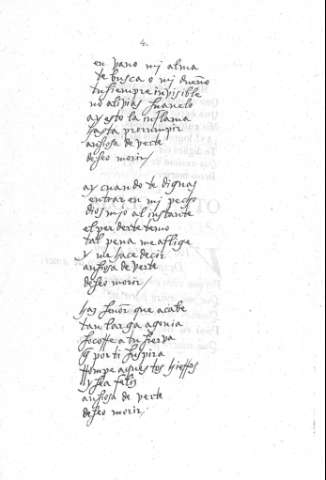 4.
en vano mi alma
te busca o mi dueño
tu siempre invisible
no alivias su anelo
ay esto la inflama
hasta prorrumpir
ansiosa de verte
deseo morir
ay cuando te dignas
entrar en mi pecho
dios mio al instante
el perderte temo
tal pena me aflige
y me hace decir
ansiosa de verte
deseo morir
haz señor que acabe
tan larga agonia
socorre a tu sierva
q por ti suspira
rrompe aquestos hierros
y sea feliz
ansiosa de verte
deseo morir